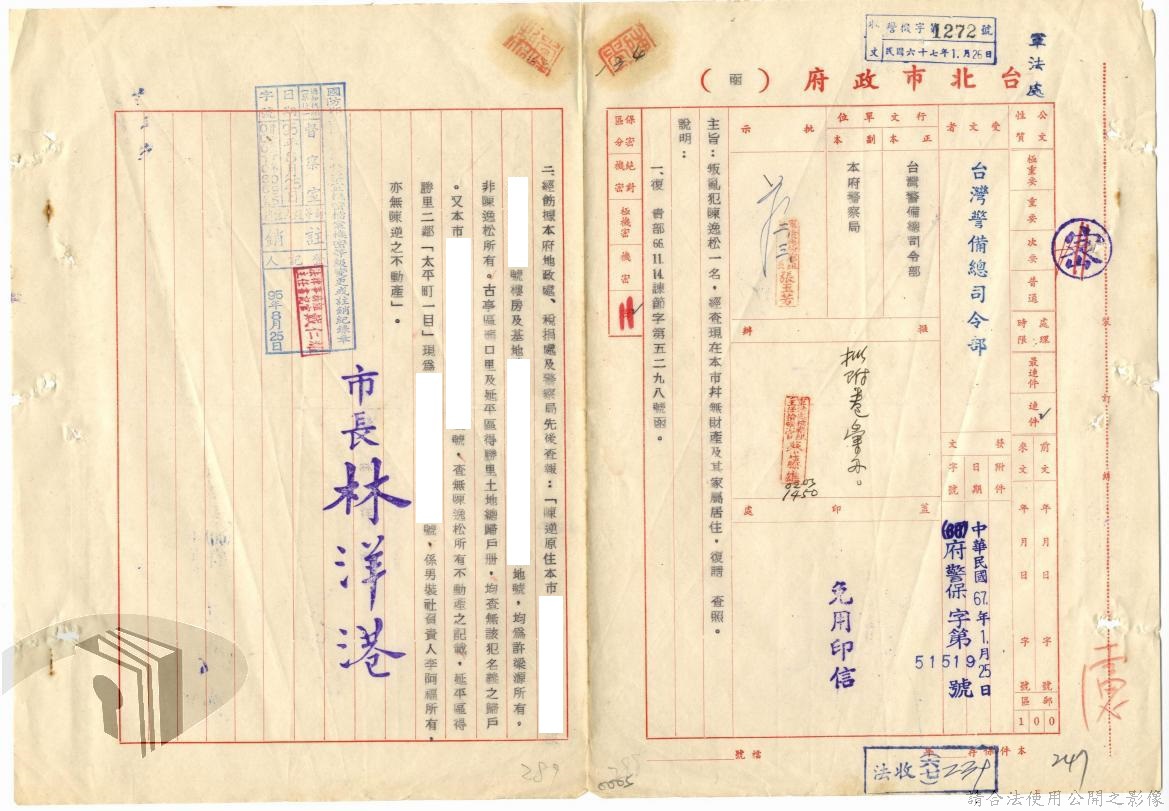 收文
警檢字第1272號
民國六十七年1.月26日
軍法處
台北市政府（函）
公文性質
極重要
重要
次要
普通
處理時限
最速件
速件
來文
前文
年
月
日
字
號
受文者
台灣警備總司令部
發文
附件
日期
中華民國67.年1.月25日
字號
(66)府警保字第51519號
郵區
100
行文單位
正本
台灣警備總司令部
副本
本府警察局
批示
擬辦
蓋印處
免用印信
保密區分
絕對機密
極機密
機密
主旨：叛亂犯陳逸松一名，經查現在本市并無財產及其家屬居住，復請　查照。
說明：
一、復　貴部66.11.14.諫節字第五二九八號函。
二、經飭據本府地政處、稅捐處及警察局先後查報：「陳逆原住本市
號樓房及基地
地號，均為許梁源所有。
非陳逸松所有。古亭區南口里及延平區得勝里土地總歸戶册，均查無該犯名義之歸戶
。又本市
號，查無陳逸松所有不動產之記載，延平區得
勝里二鄰「太平町一目」現為
號，係男裝社負責人李阿福所有，
亦無陳逆之不動產」。
市長林洋港
國防部
督察室
註銷
日期
字號
95年8月25日
法收
(六七)
239
本件保存
年
檔號
裝
訂
線
247
0005
請合法使用公開之影像